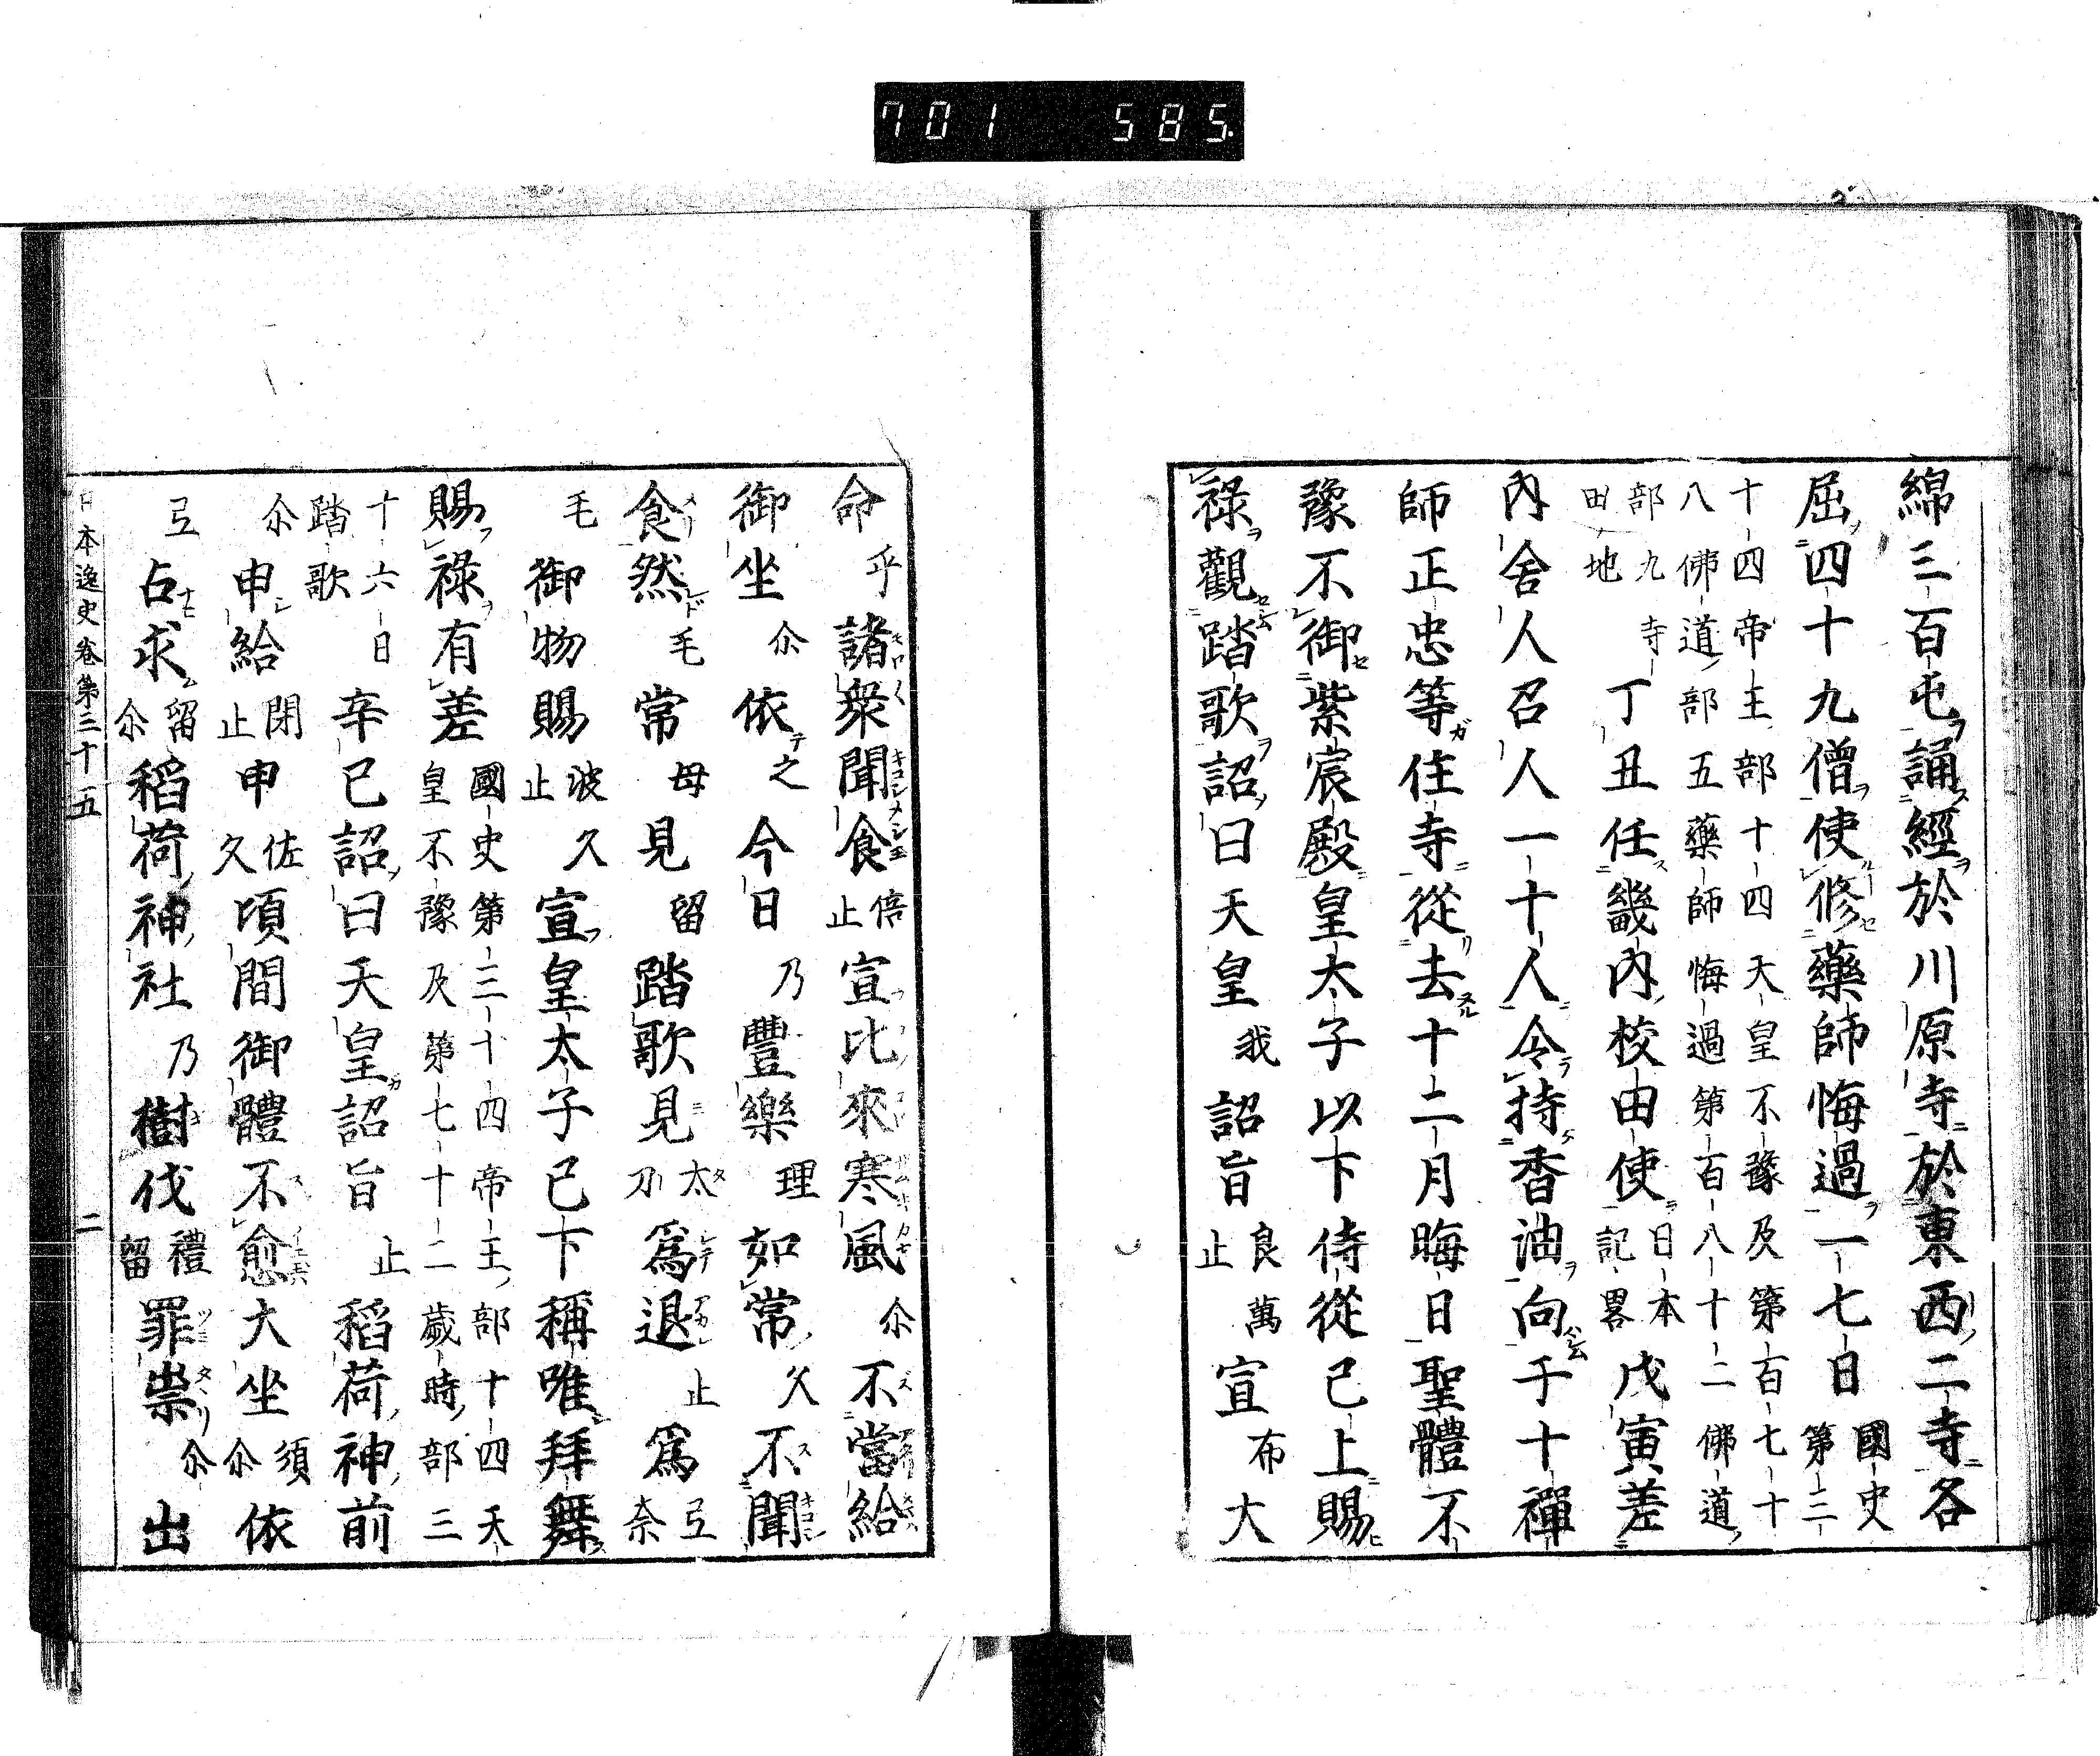 701 585.
綿三百屯誦經於川原寺於東西二寺各
屈四十九僧使修藥師悔過一七日國史第三
十四帝王部十四天皇不豫及第百七十
八佛道部五藥師悔過第百八十二佛道
部九寺田地丁丑任畿內校田使日本記畧戊寅差
內舍人召人一十人令持香油向于十禪
師正忠等住寺從去十二月晦日聖體不
豫不御紫宸殿皇太子以下侍從已上賜
祿觀踏歌詔曰天皇我詔旨良萬止宣布大
命乎諸衆聞食倍止宣比來寒風尒不當給
御坐尒依之今日乃豐樂理如常久不聞
食然毛常母見留踏歌見太為退止為弖奈
毛御物賜波久止宣皇太子已下稱唯拜舞
賜祿有差國史第三十四帝王部十四天皇不豫及第七十二歲時部三
十六日踏歌辛巳詔曰天皇詔旨止稻荷神前
尒申給閉止申佐久頃間御體不愈大坐須尒依
弖占求留尒稻荷神社乃樹伐禮留罪祟尒出
日本逸史卷第三十五
二